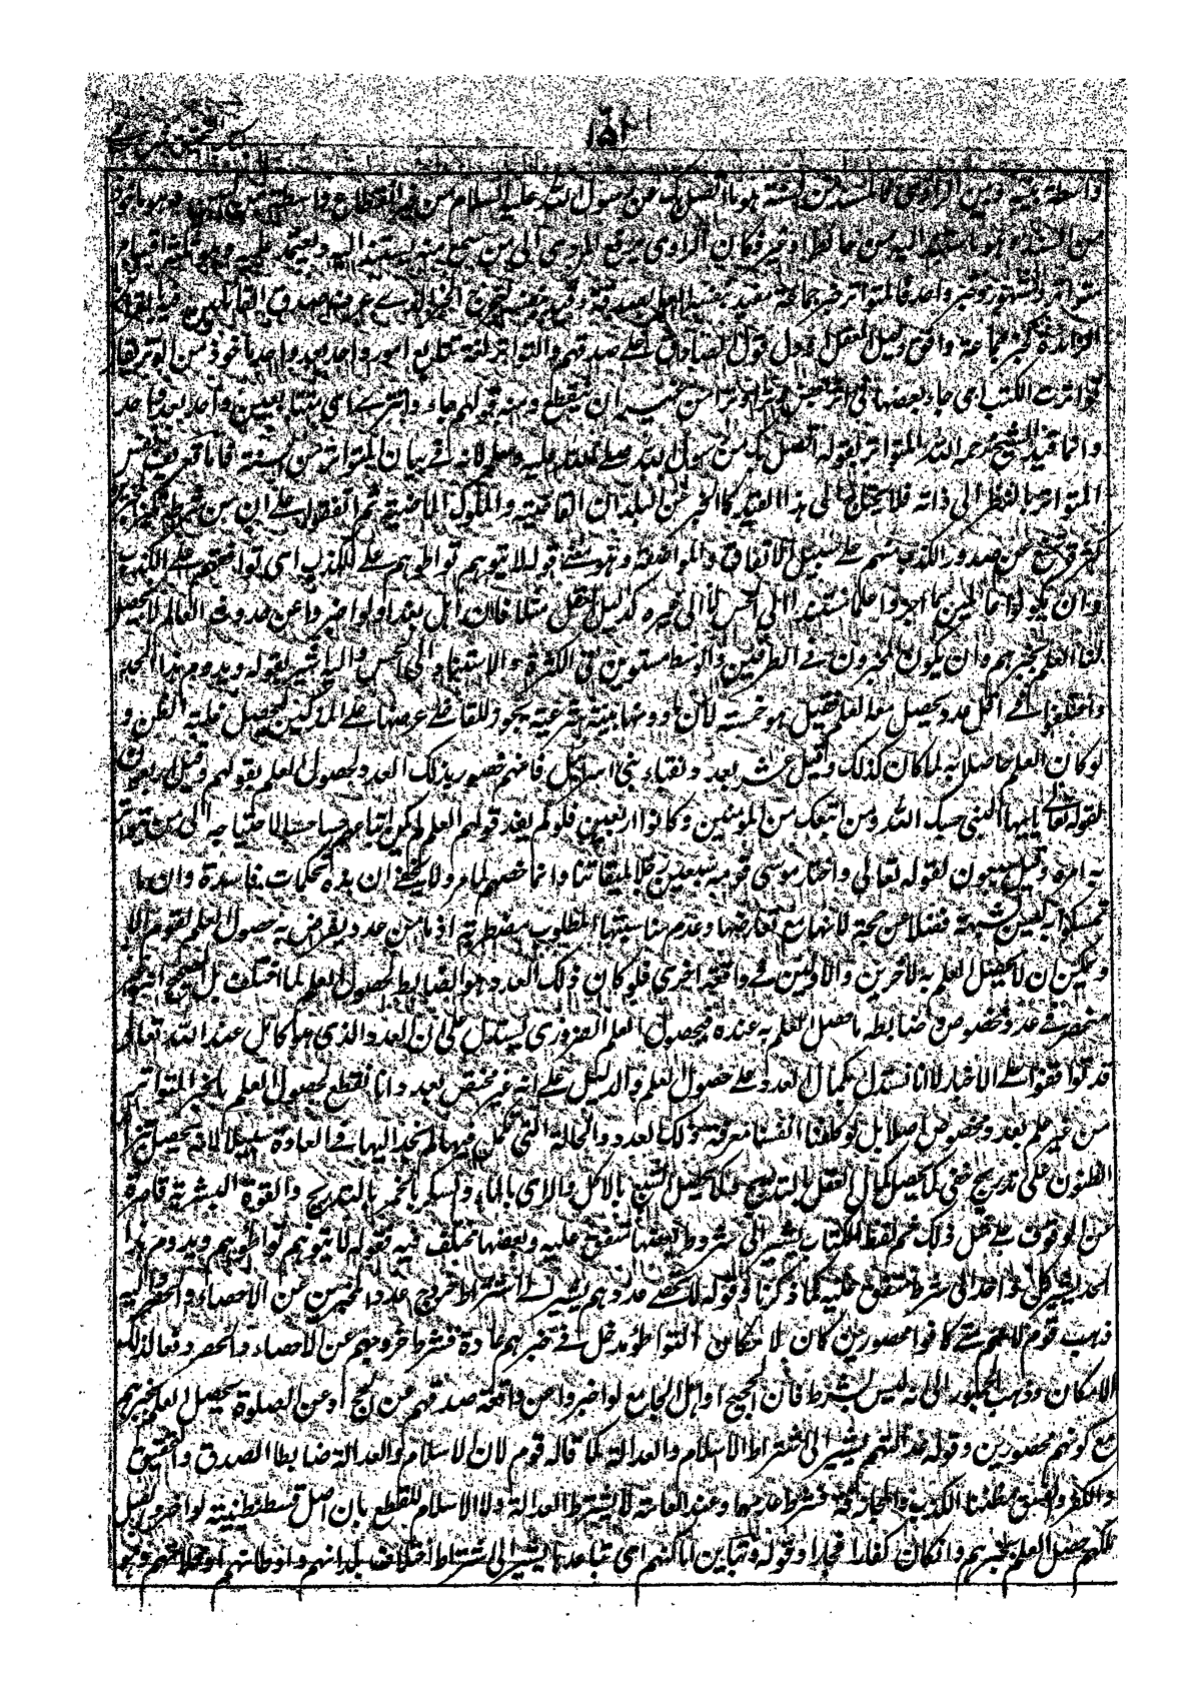 واسطة بينه وبين الراوى فالمسند من السنة هو ما اتصل بك عن رسول الله عليه السلام من غير انقطاع واسطة
الى من سمع منه يستند اليه ويعتمد عليه
متواتر ومشهور وخبر واحد فالمتواتر خبر جماعة مفيد بنفسه العلم بصدقه وقيد بنفسه ليخرج الخبر الذى عرف صدق القائلين فيه
الزائدة كخبر جماعة وافق دليل العقل او دل قول الصادق على صدقهم والتواتر لغة تتابع امور واحد بعد واحد ماخوذ من الوتر يقال
تواترت الكتب اى جاء بعضها فى اثر بعض وترا وترا من غير ان ينقطع ومنه قولهم جاؤا تترى اى متتابعين واحد بعد واحد
وانما قيد الشيخ رحمه الله المتواتر بقوله اتصل بك من رسول الله صلى الله عليه وسلم لانه فى بيان المتواتر من السنة فاما تعريف نفس
المتواتر بالنظر الى ذاته فلا يحتاج الى هذا القيد كالخبر عن البلدان القاصية والملوك الماضية ثم اتفقوا على ان من شرطه
كثرة تمنع عن صدور الكذب منهم على سبيل الاتفاق والمواضعة وهو معنى قوله لا يتوهم تواطؤهم على الكذب اى توافقهم على الكذب
وان يكونوا عالمين بما اخبروا علما مستندا الى الحس لا الى غيره كدليل العقل مثلا فان اهل بغداد لو اخبروا عن حدوث العالم لا يحصل
لنا العلم بخبرهم وان يكون المخبرون فى الطرفين والوسط مستوين فى الكثرة والاستناد الى الحس واليه اشير بقوله ويدوم هذا الحد
واختلفوا فى اقل عدد يحصل معه العلم فقيل هو خمسة لان ما دونها بينة شرعية يجوز للقاضى عرضها على المزكين ليحصل غلبة الظن و
لو كان العلم حاصلا به لما كان كذلك وقيل اثنا عشر بعدد نقباء بنى اسرائيل فانهم خصوا بذلك العدد لحصول العلم بقولهم وقيل اربعون
لقوله تعالى يايها النبى حسبك الله ومن اتبعك من المؤمنين وكانوا اربعين فلو لم يفد قولهم العلم لم يكن حسبا لاحتياجه الى من
به امره وقيل سبعون لقوله تعالى واختار موسى قومه سبعين رجلا لميقاتنا وانما خصهم لما مر ولا يخفى ان هذه تحكمات فاسدة وان ما
تمسكوا به ليس بشبهة فضلا عن حجة لانها مع تعارضها وعدم مناسبتها المطلوب مضطربة اذ ما من عدد يفرض به حصول العلم لقوم الا
ويمكن ان لا يحصل العلم به لآخرين والاولين فى واقعة اخرى فلو كان ذلك العدد هو الضابط لحصول العلم لما اختلف بل الصحيح انه غير
منحصر فى عدد مخصوص وضابطه ما حصل العلم به عنده فبحصول العلم الضرورى يستدل على ان العدد الذى هو كامل عند الله تعالى
قد توافقوا على الاخبار لا انا نستدل بكمال العدد على حصول العلم والدليل على انه غير مختص بعدد انا نقطع بحصول العلم بالخبر المتواتر
من غير علم بعدد مخصوص اصلا بل لو كلفنا انفسنا معرفة ذلك العدد والحالة التى تكمل فيها لم نجد اليها فى العادة سبيلا لانه يحصل بتزايد
الظنون على تدريج خفى كما يحصل كمال العقل بالتدريج وكما يحصل الشبع بالاكل والرى بالماء والسكر بالخمر بالتدريج والقوة البشرية قاصرة
عن الوقوف على مثل ذلك ثم لفظ الكتاب يشير الى شروط بعضها متفق عليه وبعضها مختلف فيه فقوله لا يتوهم تواطؤهم ويدوم هذا
الحد يشير كل واحد الى شرط متفق عليه كما ذكرنا وقوله لا يحصى عددهم يشير الى اشتراط خروج عدد المخبرين عن الاحصاء والحصر واليه
ذهب قوم لانهم متى كانوا محصورين كان لامكان التواطؤ مدخل فى خبرهم عادة فشرط خروجهم عن الاحصاء والحصر دفعا لذلك
الامكان وذهب الجمهور الى انه ليس بشرط فان الحجيج او اهل الجامع لو اخبروا عن واقعة صدتهم عن الحج او عن الصلوة يحصل العلم بخبرهم
مع كونهم محصورين وقوله عدالتهم يشير الى اشتراط الاسلام والعدالة كما قاله قوم لان الاسلام والعدالة ضابطا الصدق والتحقيق
والكفر والفسق مظنتا الكذب والمجازفة فشرط عدمهما وعند العامة لا يشترط العدالة ولا الاسلام للقطع بان اهل قسطنطينية لو اخبروا بقتل
ملكهم حصل العلم بخبرهم وان كانوا كفارا فجارا وقوله وتباين اماكنهم اى تباعدها يشير الى اشتراط اختلاف بلدانهم واوطانهم ومحلاتهم وهو